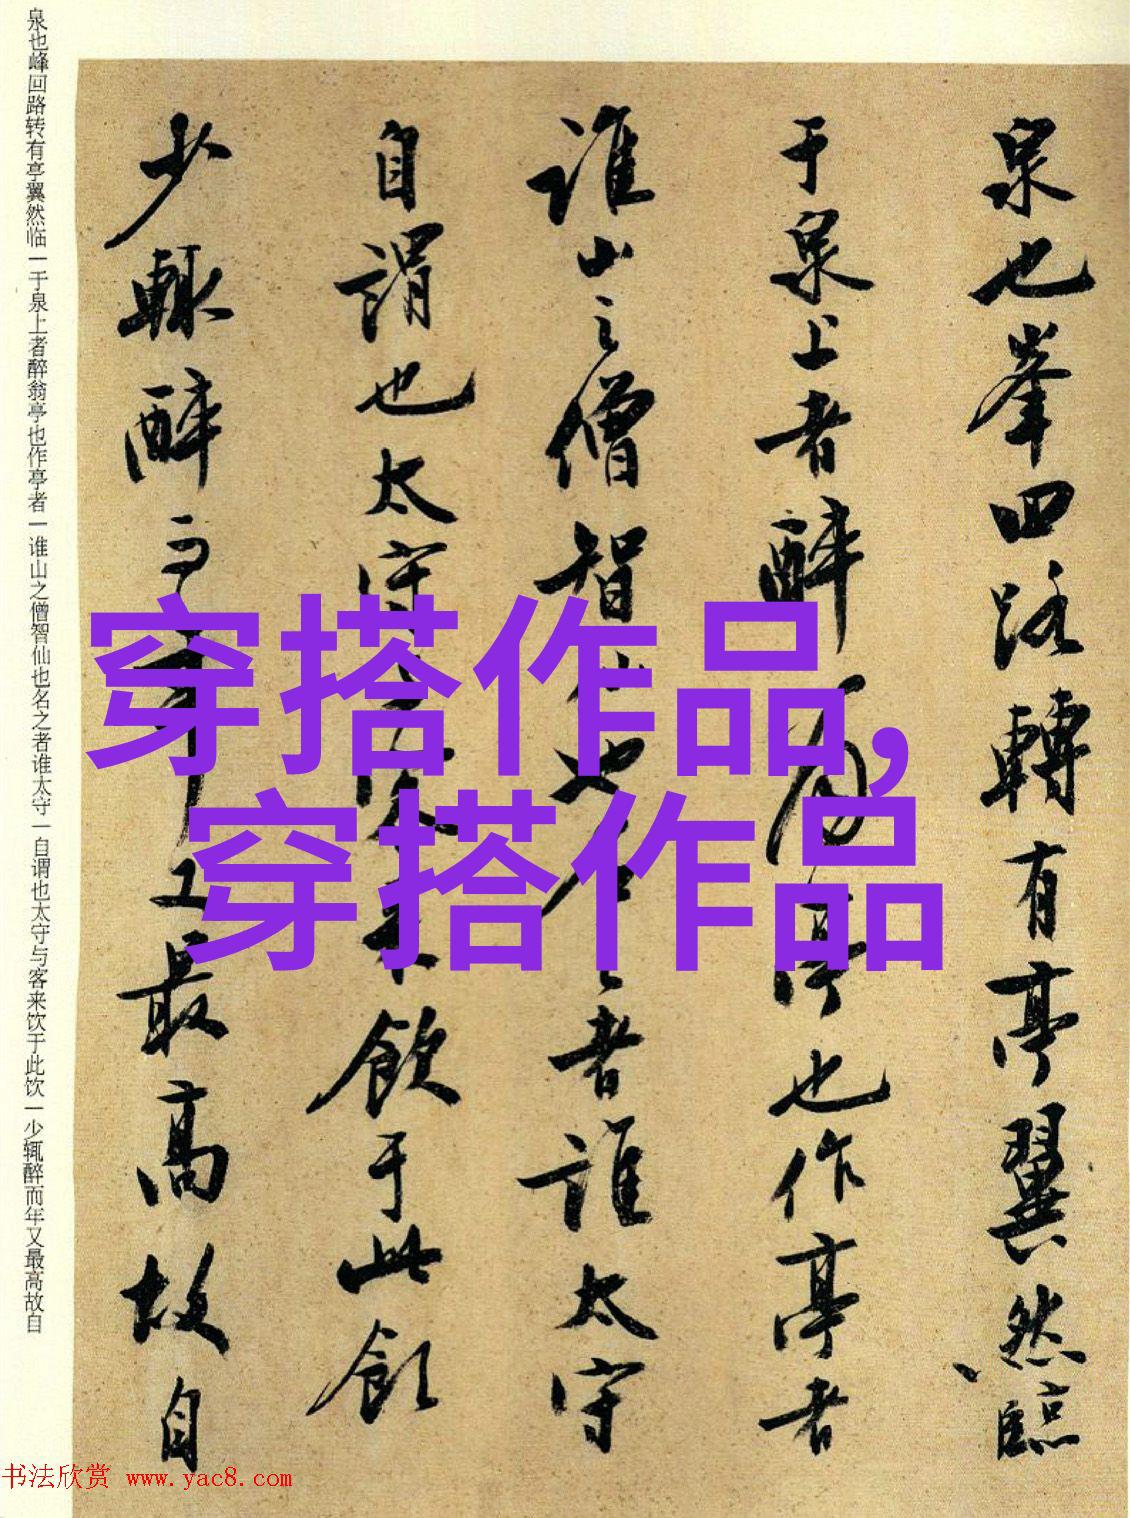 穿搭作品,
穿搭作品
泉也峯回路轉有亭翼然臨
于泉上者醉翁亭也作亭者
誰山之僧智仙也名之者誰太守
自謂也太守与客来飲于此飲
少輒醉而年又最高故自
泉也峰回路转有亭翼然临一于泉上者醉翁亭也作亭者一谁山之僧智仙也名之者谁太守一自谓也太守与客来饮于此饮一少辄醉而年又最高故自
书法欣赏 www.yac8.com